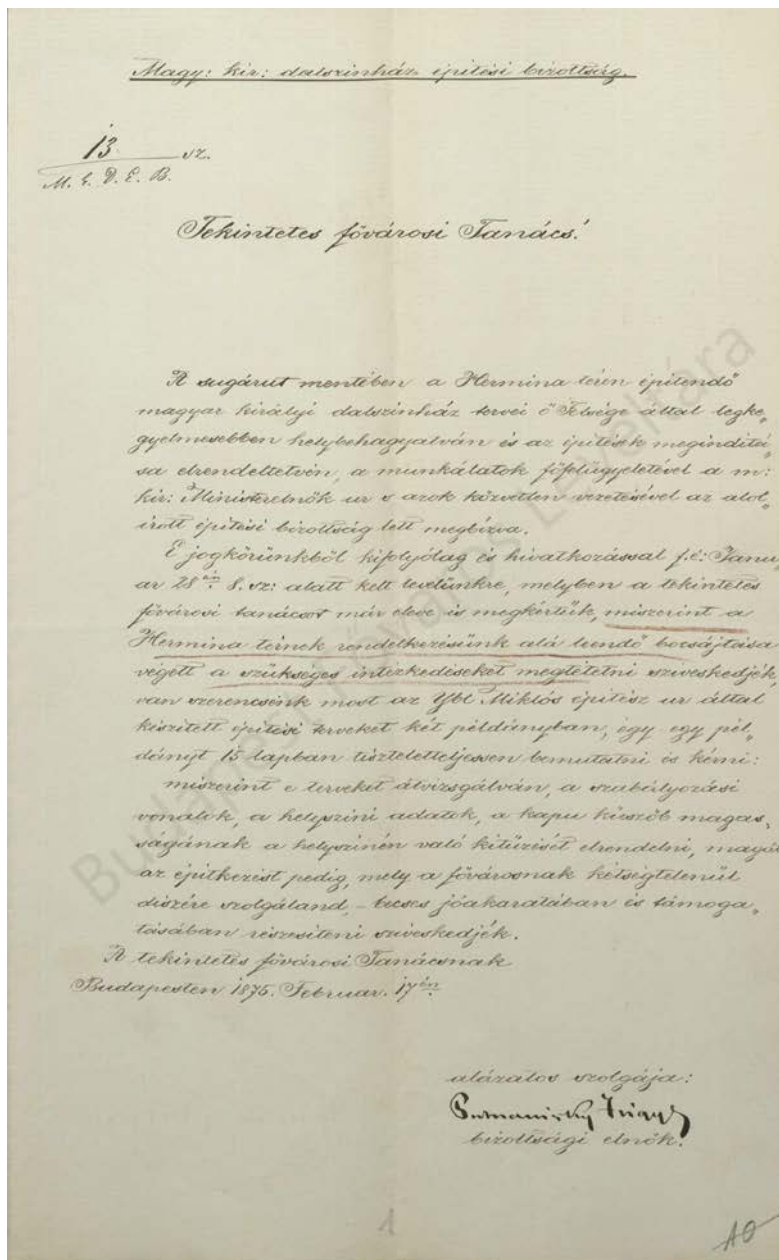 Magy: kir: dalszinház építési bizottság.
13. sz.
M. E. D. E. B.
Tekintetes fővárosi Tanács!
A sugárut mentében a Hermina téren építendő
magyar királyi dalszinház tervei ő Felsége által legke„
gyelmesebben helybehagyatván és az építések meginditá„
sa elrendeltetvén, a munkálatok főfelügyeletével a m:
kir: Ministerelnök ur s azok közvetlen vezetésével az alol„
irott építési bizottság lett megbízva.
E jogkörünkből kifolyólag és hivatkozással f. é: Janu„
ar 28án 8. sz: alatt kelt levelünkre, melyben a tekintetes
fővárosi tanácsot már eleve is megkértük, miszerint a
Hermina térnek rendelkezésünk alá leendő bocsájtása
végett a szükséges intézkedéseket megtétetni sziveskedjék,
van szerencsénk most az Ybl Miklós építész ur által
készített építési terveket két példányban, egy-egy pél„
dányt 15 lapban tiszteletteljessen bemutatni és kérni:
miszerint e terveket átvizsgálván, a szabályozási
vonalok, a helyszini adatok, a kapu küszöb magas„
ságának a helyszinén való kitűzését elrendelni, magát
az építkezést pedig, mely a fővárosnak kétségtelenül
diszére szolgáland, – becses jóakaratában és támoga„
tásában részesíteni sziveskedjék.
A tekintetes fővárosi Tanácsnak
Budapesten 1875. Februar. 17én
alázatos szolgája:
Podmaniczky Frigyes
bizottsági elnök.
1
10
Budapest Főváros Levéltára